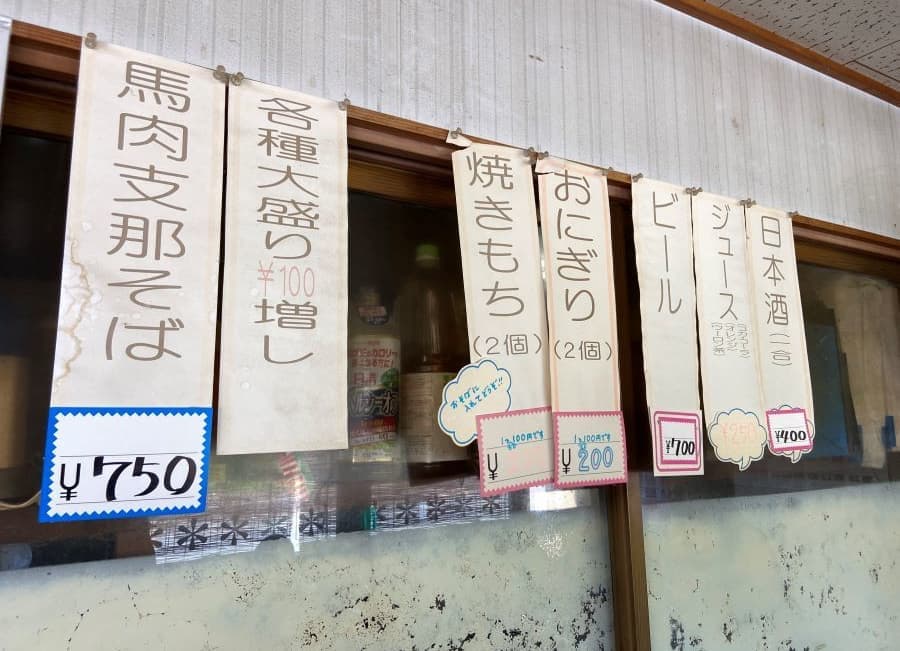 馬肉支那そば
¥750
各種大盛り
¥100
増し
焼きもち
(2個)
おそばに
入れてどうぞ!!
1コ100円です
¥
おにぎり
(2個)
1コ100円です
¥200
ビール
¥700
ジュース
コカコーラ
オレンジ
ウーロン茶
¥250
日本酒(一合)
¥400